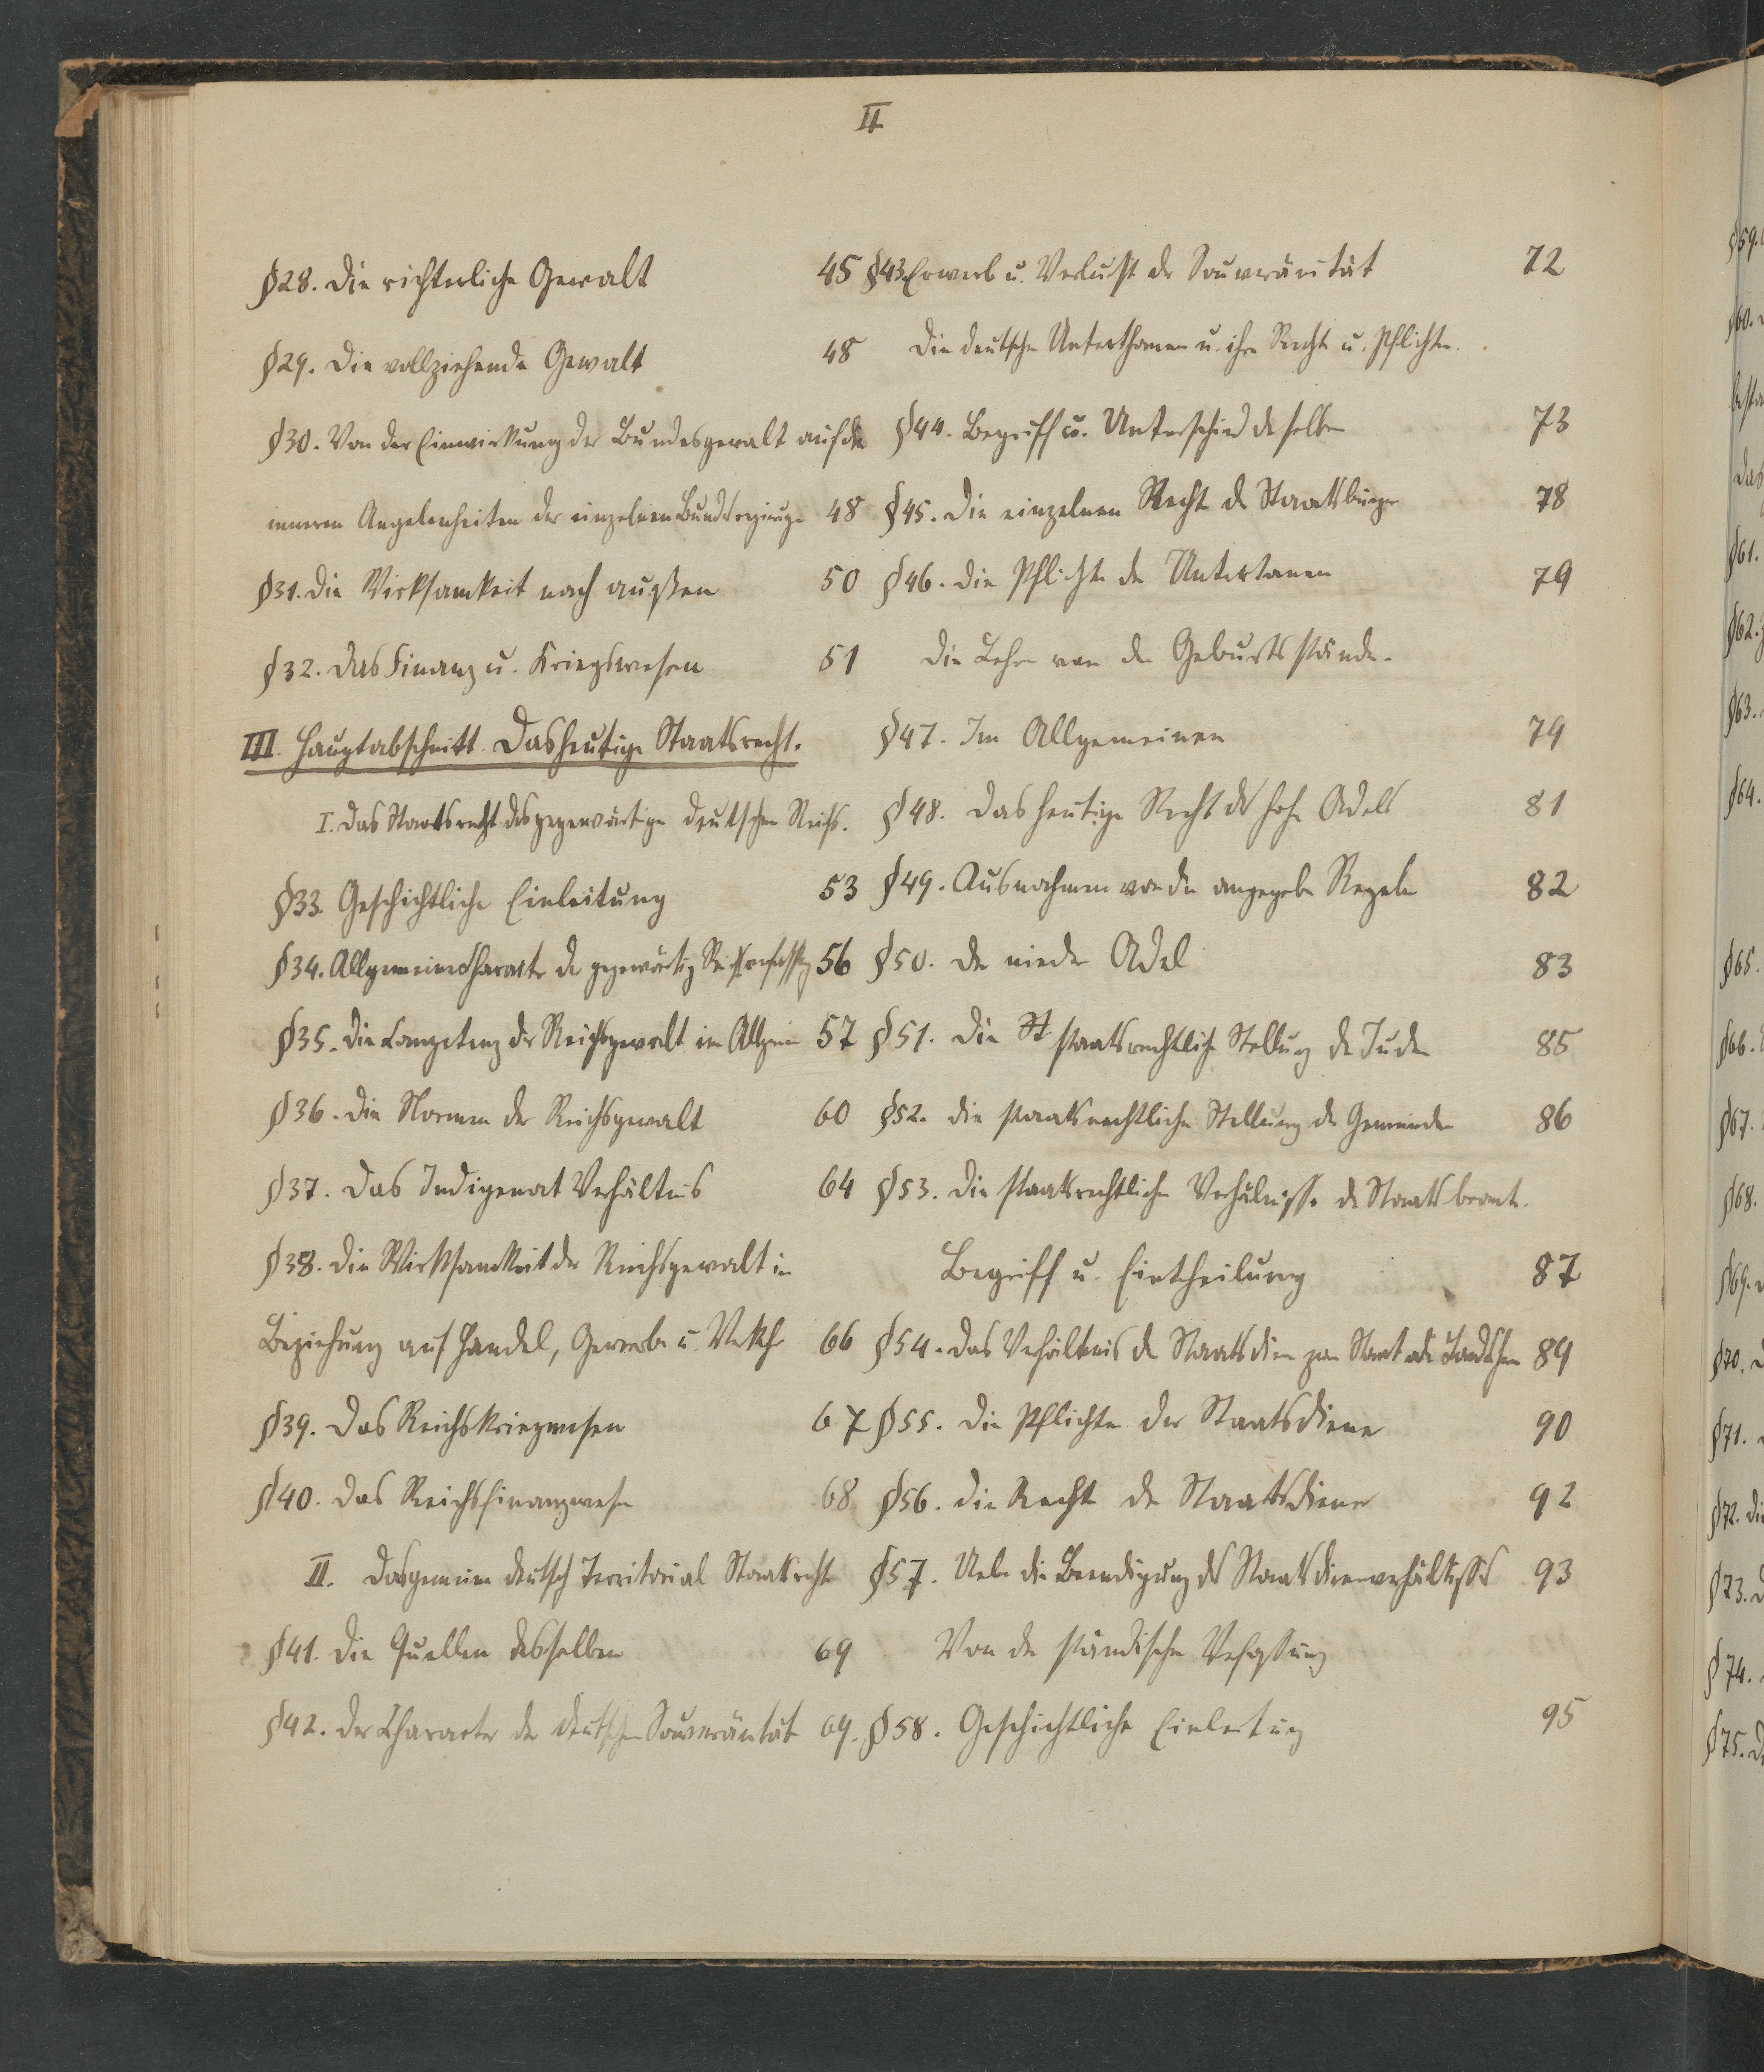 II
§28. Die richterliche Gewalt 45
§29. Die vollziehende Gewalt 48
§30. Von der Einwirkung der Bundesgewalt auf die
inneren Angelenheiten der einzelnen Bundesregierunge 48
§31. Die Wirksamkeit nach außen 50
§32. Das Finanz u. Kriegswesen 51
III. Hauptabschnitt. Das heutige Staatsrecht.
I. Das Staatsrecht des gegenwärtigen deutschen Reichs.
§33. Geschichtliche Einleitung 53
§34. Allgemeiner Character der gegenwärtig Reichsverfassg 56
§35. Die Competenz der Reichsgewalt im Allgemein 57
§36. Die Normen der Reichsgewalt 60
§37. Das Indigenat Verhältnis 64
§38. Die Wirksamkeit der Reichsgewalt in
Beziehung auf Handel, Gewerbe u. Verkehr 66
§39. Das Reichskriegswesen 67
§40. Das Reichsfinanzwesen 68
II. Das gemeine deutsch Territorial Staatsrecht
§41. Die Quellen desselben 69
§42. Der Character der deutschen Souveränität 69.
§43. Erwerb u. Verlust der Souveränität 72
Die deutschen Unterthanen u. ihre Rechte u. Pflichten.
§44. Begriff u. Unterschied deselben 73
§45. Die einzelnen Recht der Staatsbürger 78
§46. Die Pflichten der Untertanen 79
Die Lehre von den Geburtsständen.
§47. Im Allgemeinen 79
§48. Das heutige Recht des hohen Adels 81
§49. Ausnahmen von den angegeben Regeln 82
§50. Der niedere Adel 83
§51. Die staatsrechtliche Stellung der Juden 85
§52. Die staatsrechtliche Stellung der Gemeinden 86
§53. Die staatsrechtlichen Verhälnisse der Staatsbeamt.
Begriff u. Eintheilung 87
§54. Das Verhältnis der Staatsdiener zum Staat oder Landesherrn 89
§55. Die Pflichten der Staatsdiener 90
§56. Die Rechte der Staatsdiener 92
§57. Ueber die Beendigung des Staatsdienerverhältnisses 93
Von der ständischen Verfassung
§58. Geschichtliche Einleitung 95